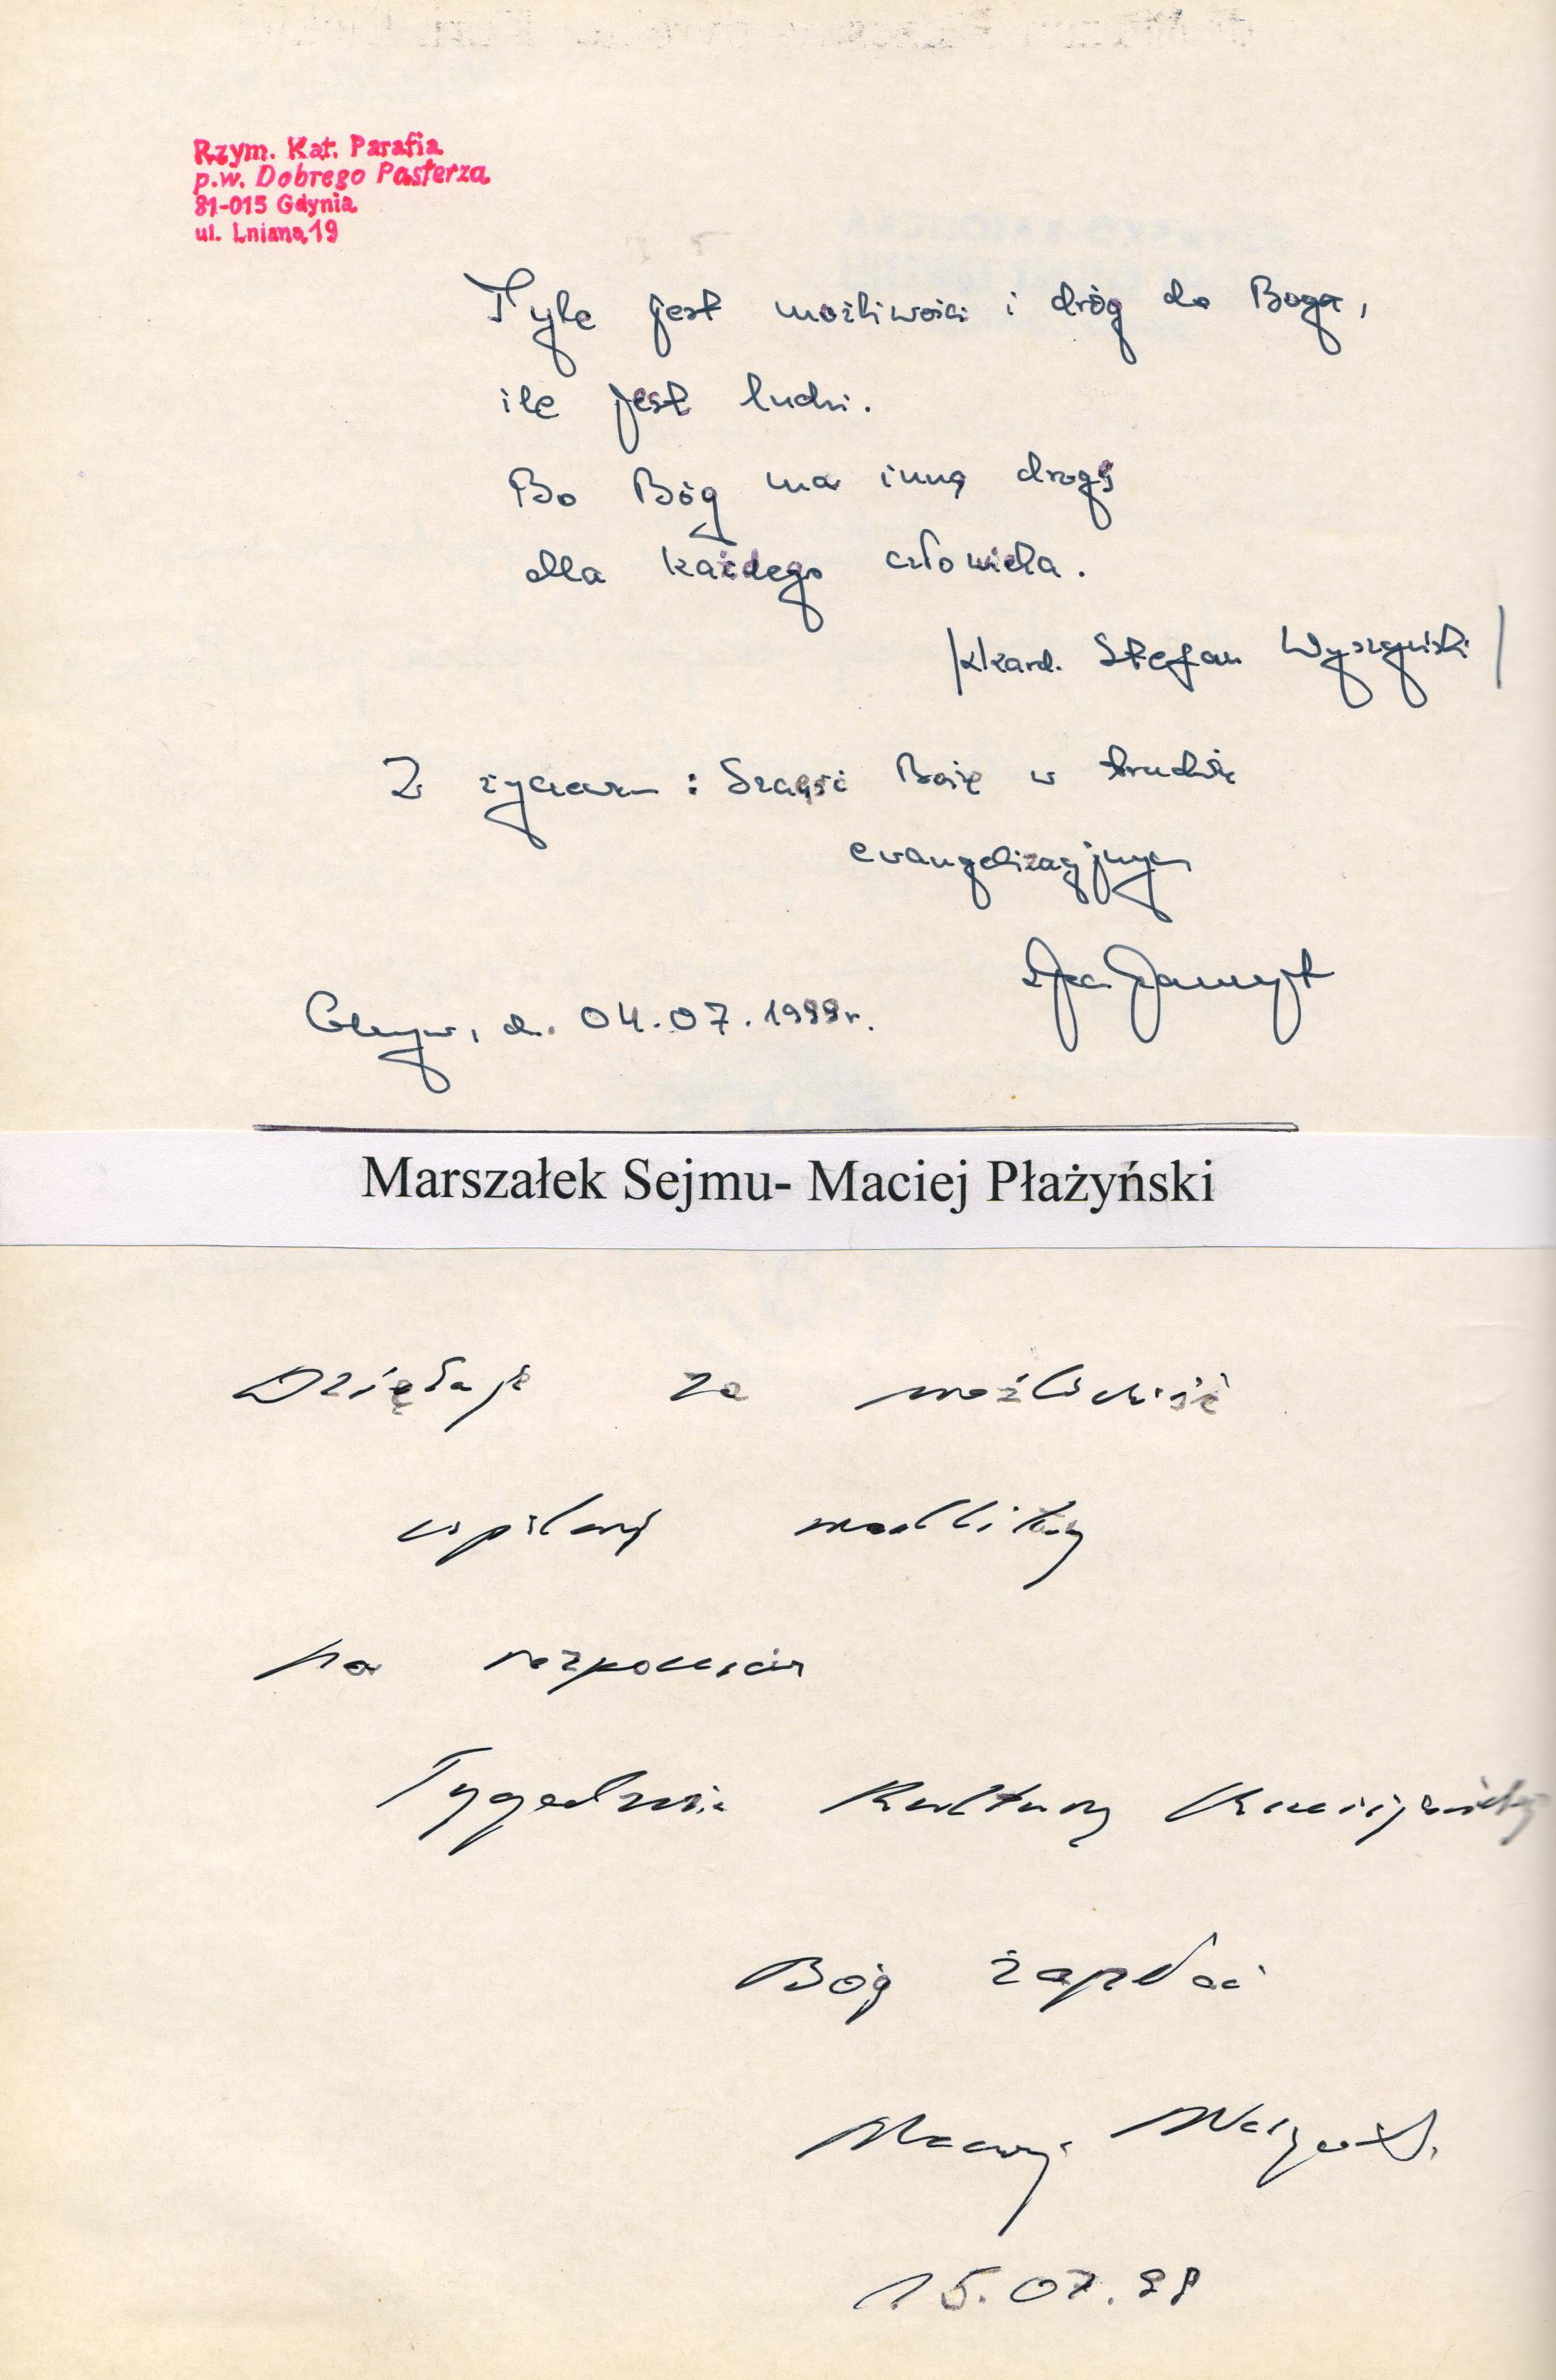 Rzym. Kat. Parafia
p.w. Dobrego Pasterza
81-015 Gdynia
ul. Lniana 19
Tyle jest możliwości i dróg do Boga,
ile jest ludzi.
Bo Bóg ma inną drogę
dla każdego człowieka.
/kard. Stefan Wyszyński/
Z życzeniem: Szczęść Boże w trudzie
ewangelizacyjnym
d. 04.07.1999r.
Marszałek Sejmu- Maciej Płażyński
Dziękuję za możliwość
wspólnej modlitwy
na rozpoczęcie
Tygodnia Kultury Chrześcijańskiej
Bóg zapłać
Maciej
15.07.99